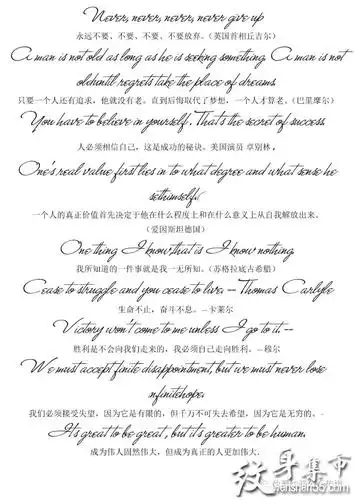 Never, never, never, never give up
永远不要、不要、不要、不要放弃。(英国首相丘吉尔)
A man is not old as long as he is seeking something. A man is not
old until regrets take the place of dreams.
只要一个人还有追求，他就没有老。直到后悔取代了梦想，一个人才算老。(巴里摩尔)
You have to believe in yourself. That's the secret of success.
人必须相信自己，这是成功的秘诀。美国演员 卓别林，
One's real value first lies in to what degree and what sense he
sethimself.
一个人的真正价值首先决定于他在什么程度上和在什么意义上从自我解放出来。
(爱因斯坦德国)
One thing I know,that is I know nothing.
我所知道的一件事就是我一无所知。(苏格拉底古希腊)
Cease to struggle and you cease to live. -- Thomas Carlyle
生命不止，奋斗不息。—卡莱尔
Victory won't come to me unless I go to it. --
胜利是不会向我们走来的，我必须自己走向胜利。—穆尔
We must accept finite disappointment, but we must never lose
nfinitehope.
我们必须接受失望，因为它是有限的，但千万不可失去希望，因为它是无穷的。-
It's great to be great , but it's greater to be human.
成为伟人固然伟大，但成为真正的人更加伟大。
纹身集市
wenshen286.com